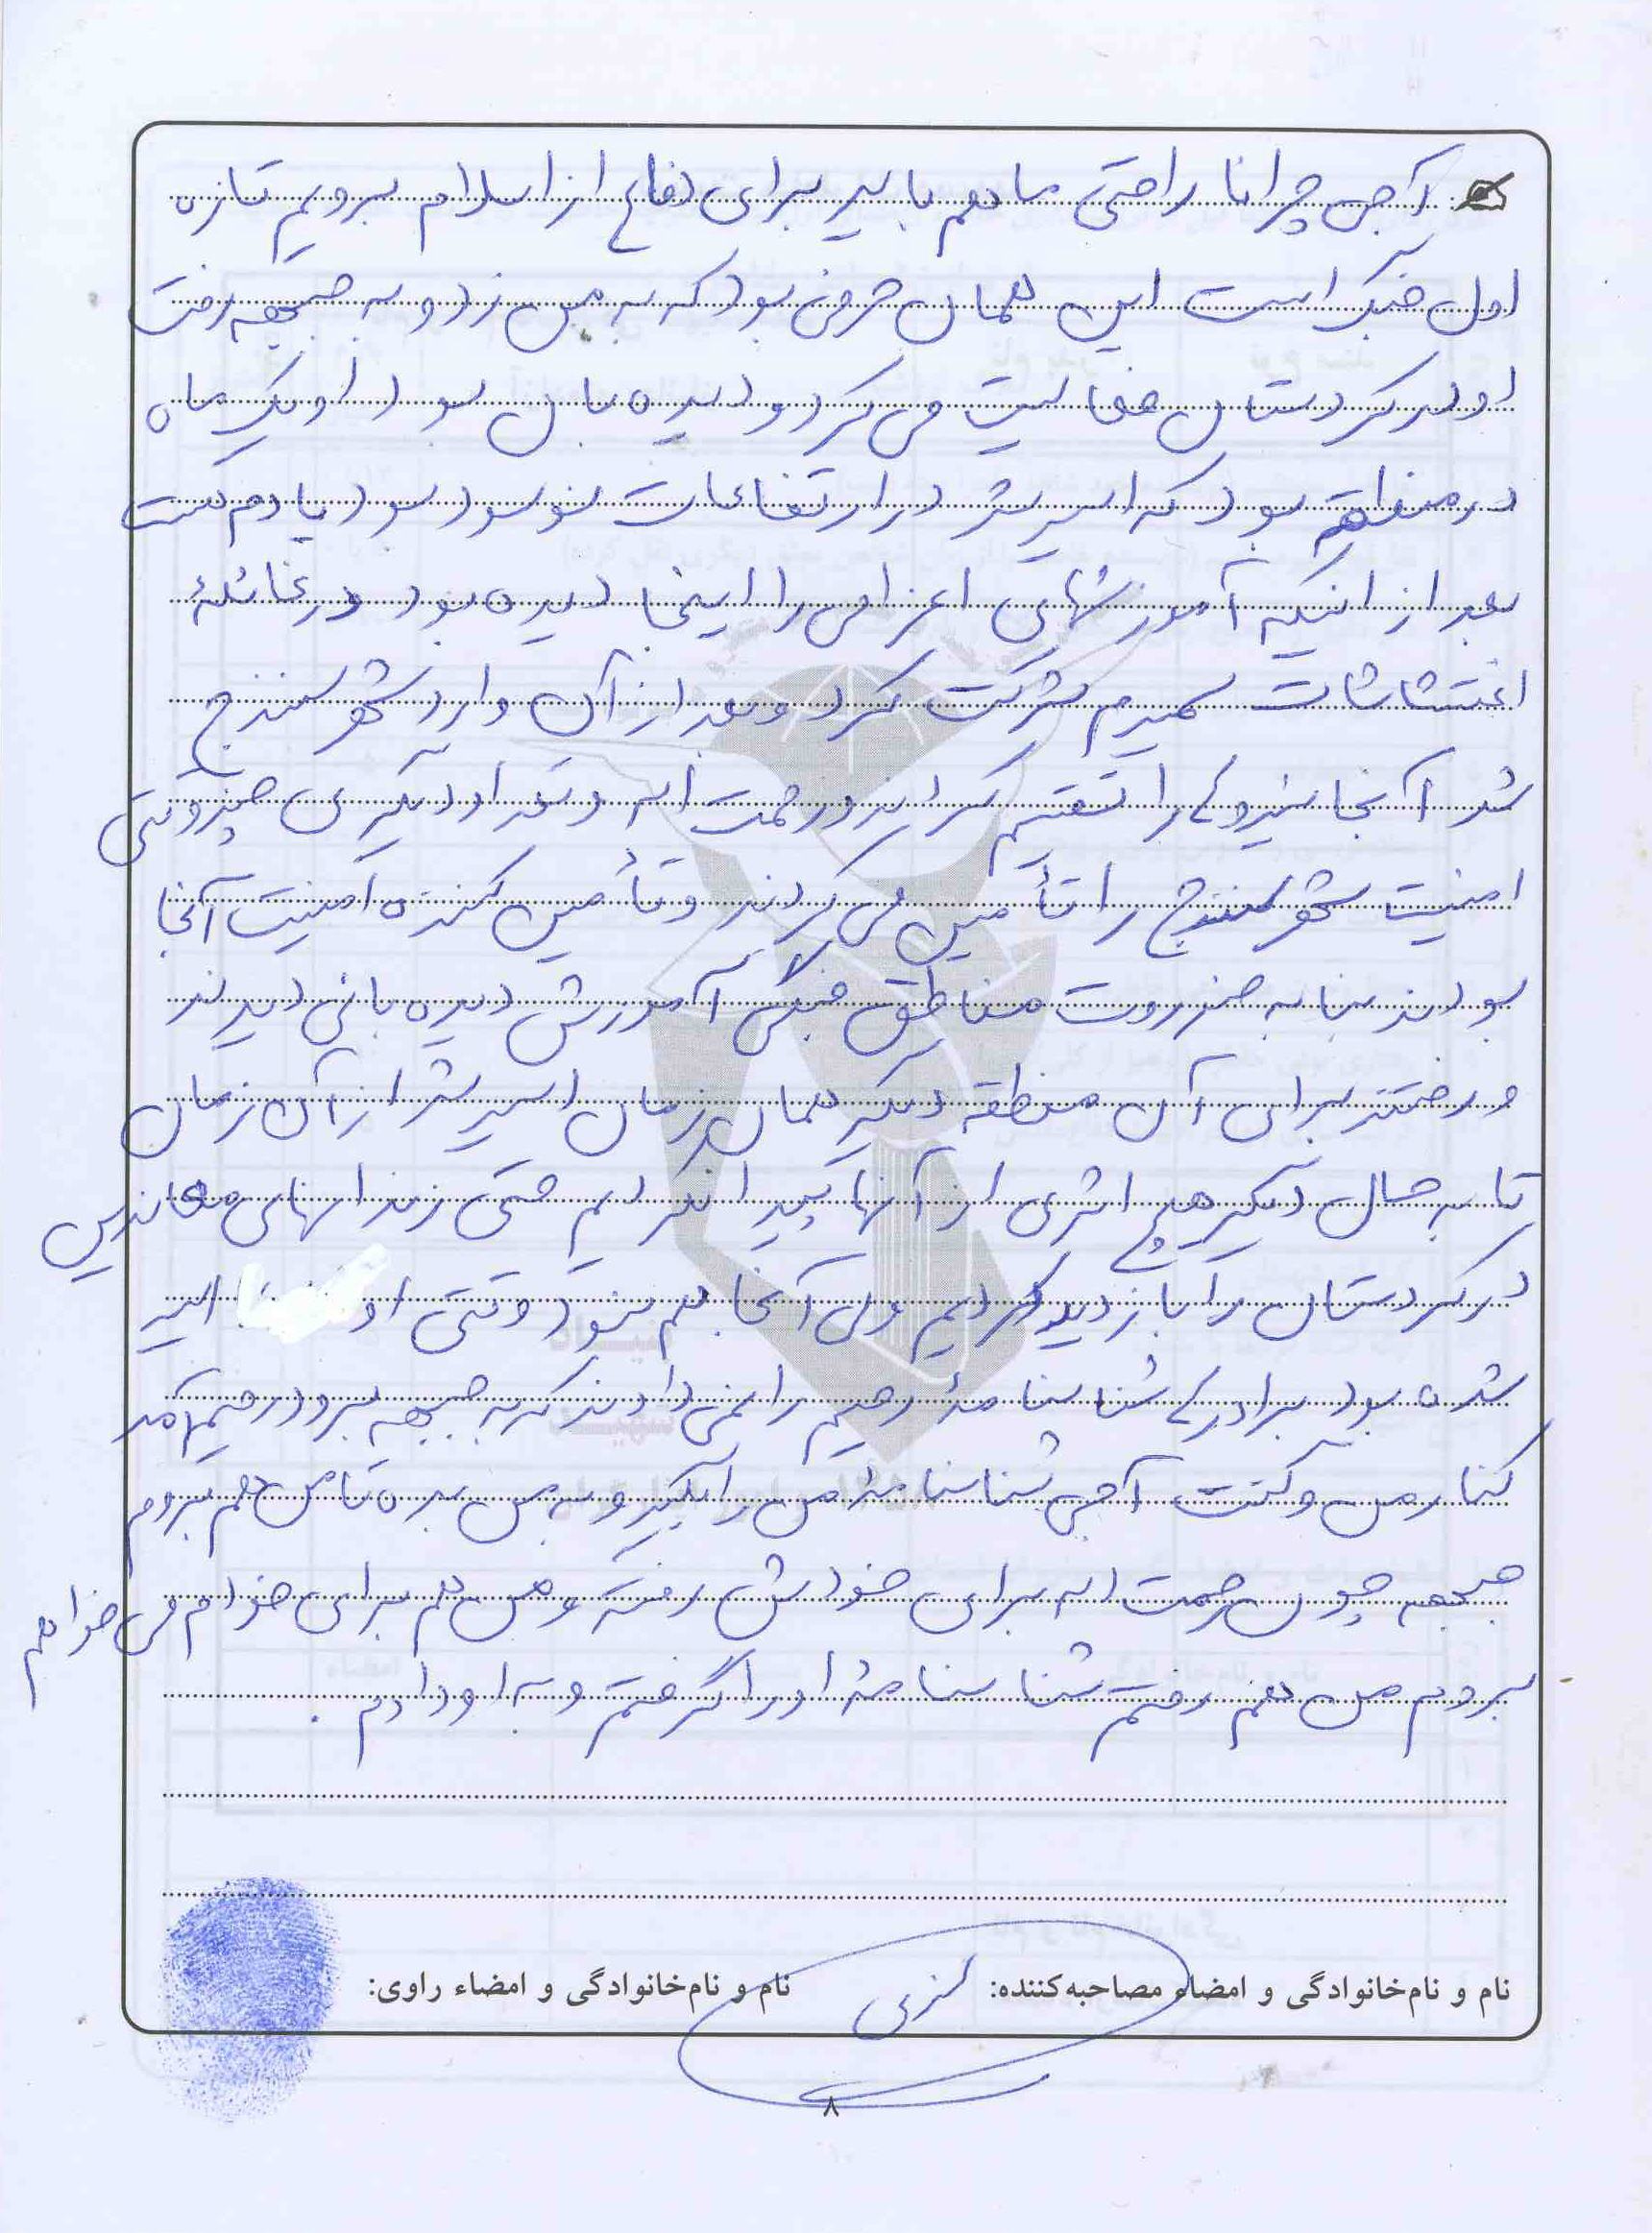 آجی چرا ناراحتی ما هم باید برای دفاع از اسلام برویم تازه
اول جنگ است این همان حرفی بود که به من زد و به جبهه رفت
او در کردستان فعالیت می کرد و دیده بان بود او یک ماه
در منطقه بود که اسیر شد در ارتفاعات نوسود بود یادم هست
بعد از اینکه آموزشهای اعزامی را اینجا دیده بود در غائله
اغتشاشات سمیرم شرکت کرد و بعد از آن وارد شهر سنندج
شد آنجا نیروها را تقسیم کردند و رحمت اله و تعداد دیگری
امنیت شهر سنندج را تأمین می کردند و تأمین کننده امنیت آنجا
بودند بنا به ضرورت مناطق جنگی آموزش دیده بانی دیدند
و رفتند برای آن منطقه دیگر همان زمان اسیر شد از آن زمان
تا به حال دیگر هیچ اثری از آنها پیدا نکردیم حتی زندانهای معاندین
در کردستان را بازدید کردیم ولی آنجا هم نبود وقتی او اسیر
شده بود برادرها شناسنامهٔ رحیم را نمی دادند که به جبهه برود رحیم آمد
کنار من و گفت آجی شناسنامهٔ من را بگیر و به من بده تا من هم بروم
جبهه چون رحمت اله برای خودش رفته و من هم برای خودم می خواهم
بروم من هم رفتم شناسنامهٔ او را گرفتم و به او دادم .
نام و نام‌خانوادگی و امضاء مصاحبه‌کننده: نام و نام‌خانوادگی و امضاء راوی:
۸